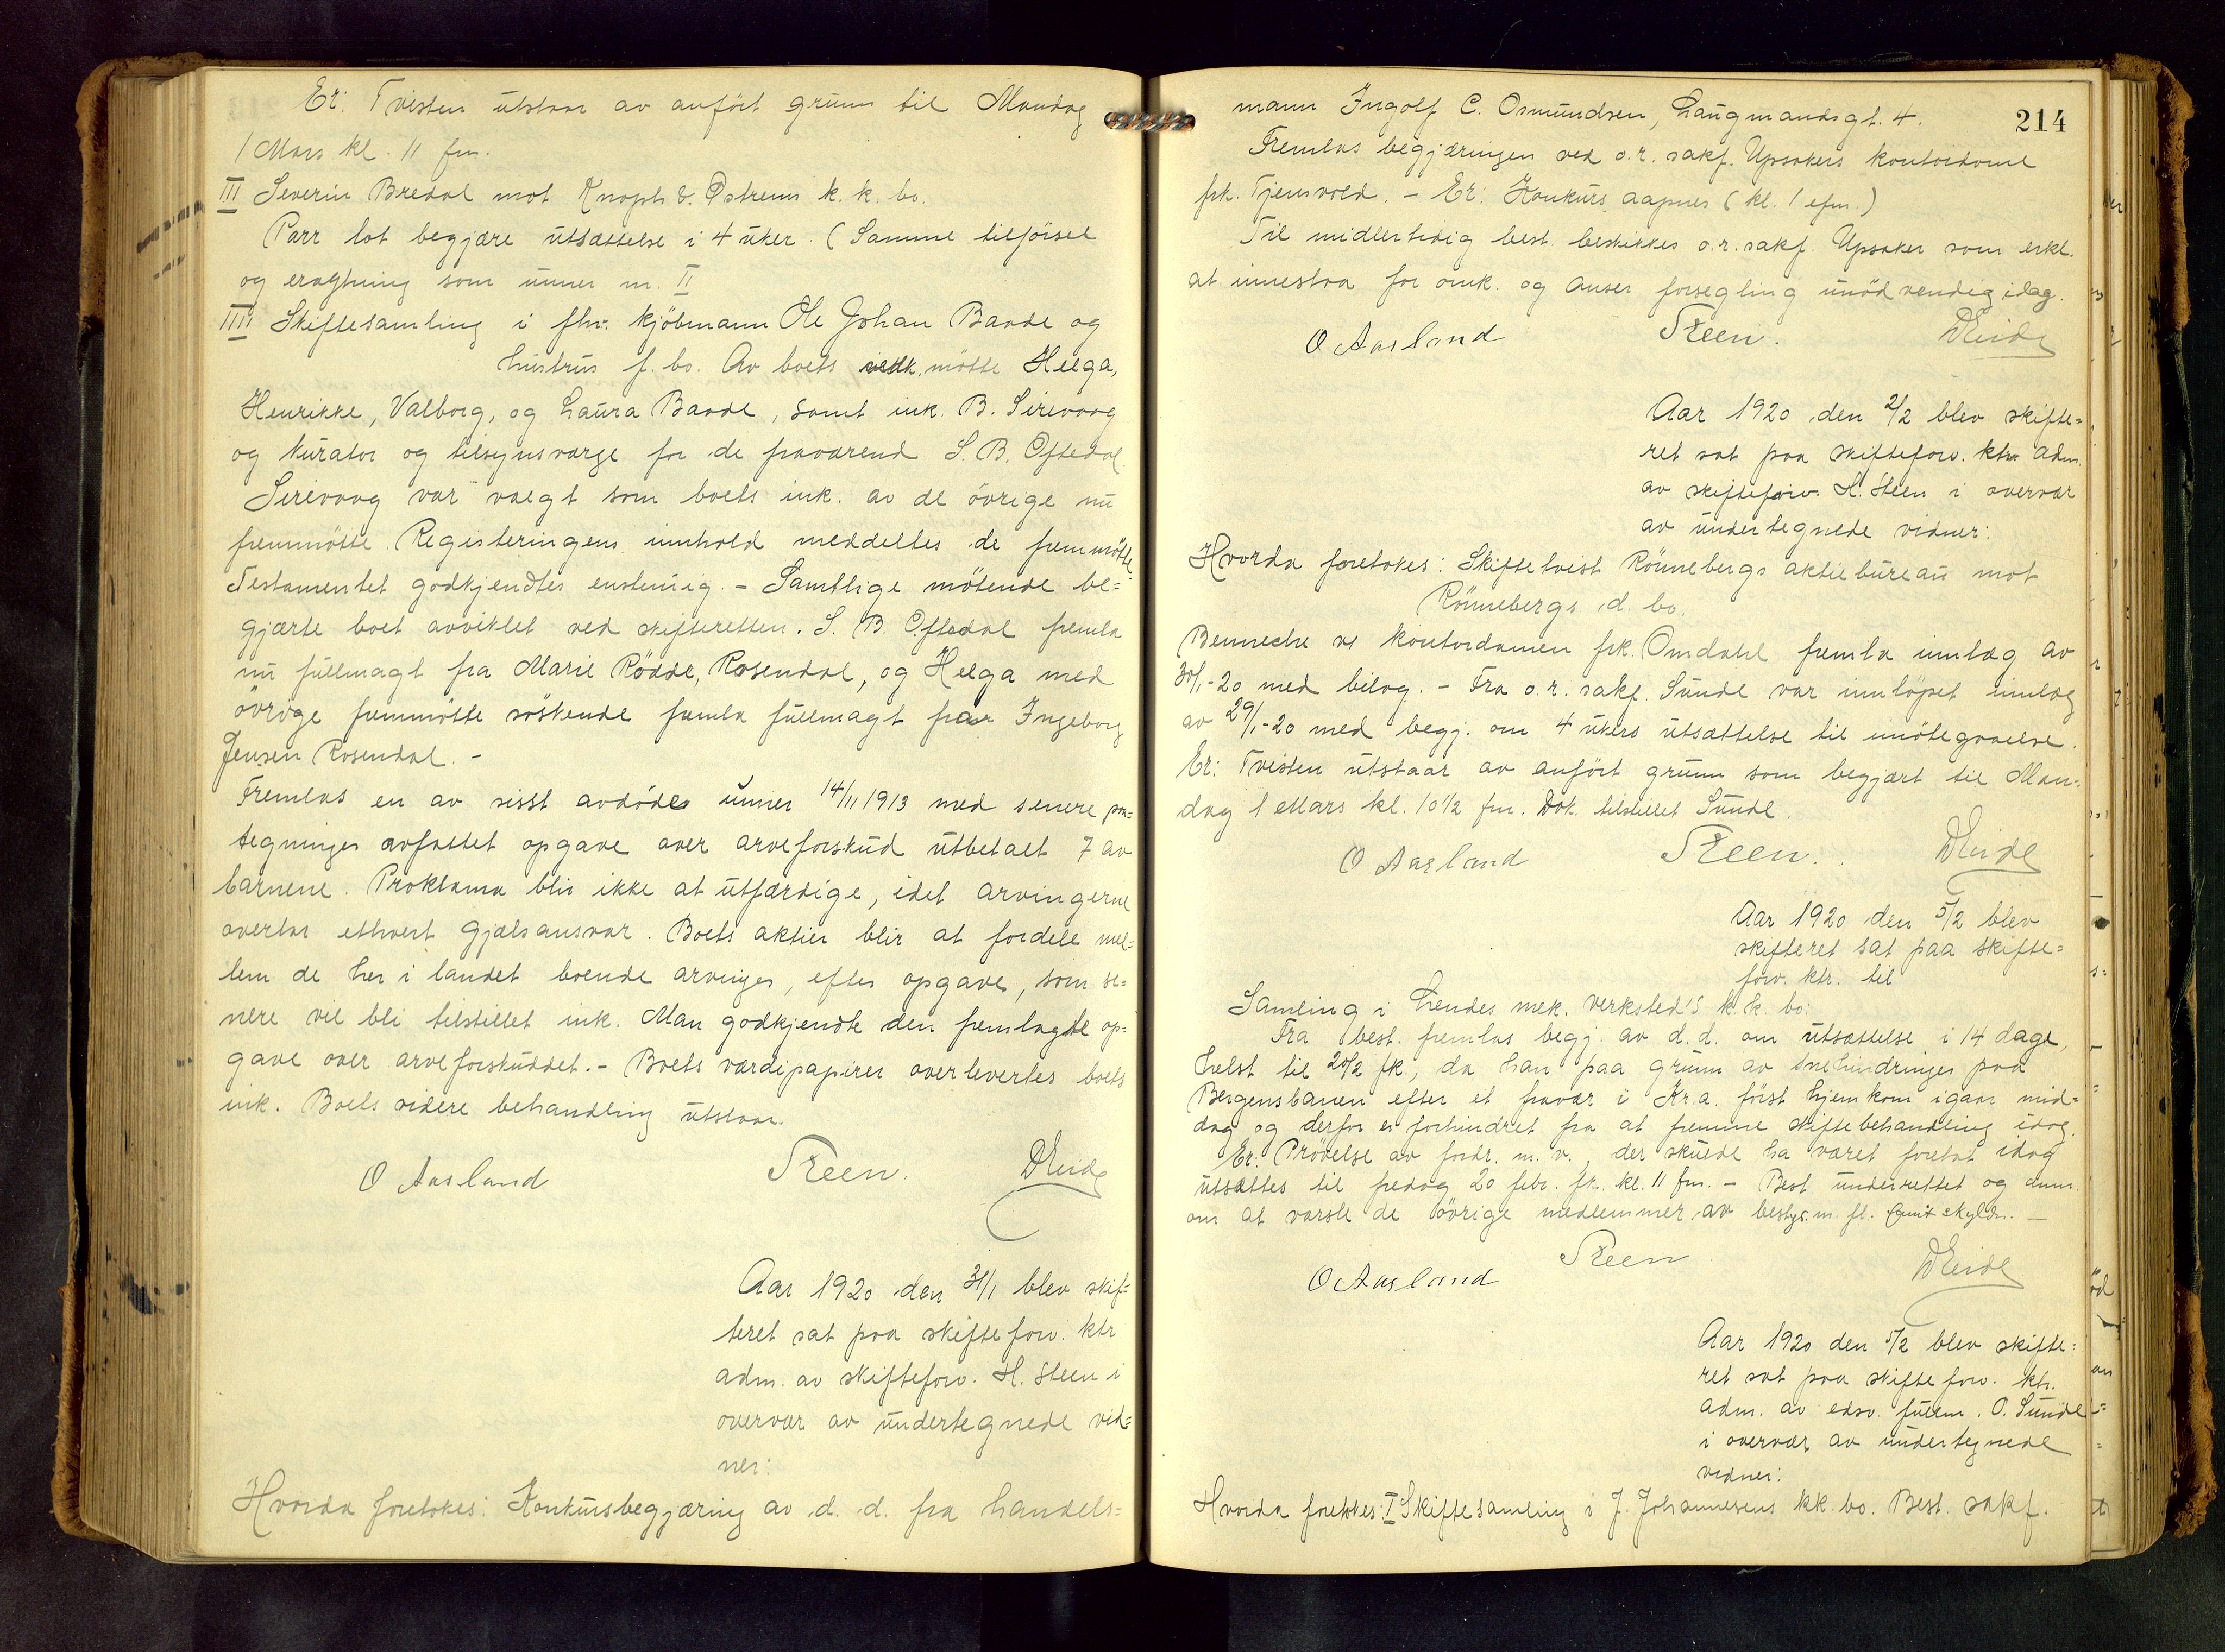 Er: Tvisten utstaar av anført grunn til Mandag
1 Mars kl. 11 fm.
III Severin Bredal mot Knoph & Østrems k. k. bo.
Parr lot begjære utsættelse i 4 uker. (Samme tilførsel
og eragtning som unner nr. II
IIII Skiftesamling i fhv. kjøbmann Ole Johan Baade og
hustrus f. bo. Av boets vedk. møtte Helga,
Henrikke, Valborg, og Laura Baade, samt ink. B. Sirevaag
og kurator og tilsynsværge for de fraværend S. B. Oftedal.
Sirevaag var valgt som boets ink. av de øvrige nu
fremmøtte. Registeringens innhold meddeltes de fremmøtte.
Testamentet godkjendtes enstemig. – Samtlige møtende be=
gjærte boet avviklet ved skifteretten. S. B. Oftedal fremla
nu fullmagt fra Marie Rødde, Rosendal, og Helga med
øvrige fremmøtte søskende fremla fullmagt fra Ingeborg
Jensen Rosendal. –
Fremlas en av sisst avdødes unner 14/11 1913 med senere paa=
tegninger avfattet opgave over arveforskud utbetalt 7 av
barnene. Proklama blir ikke at utfærdige, idet arvingerne
overtar ethvert gjælsansvar. Boets aktier blir at fordele mel=
lem de her i landet boende arvinger, efter opgave, som se=
nere vil bli tilstillet ink. Man godkjendte den fremlagte op=
gave over arveforskuddet. – Boets værdipapirer overlevertes boets
ink. Boets videre behandling utstaar.
O Aasland Steen. D Eide
Aar 1920 den 31/1 blev skif=
teret sat paa skifteforv. ktr
adm. av skifteforv. H. Steen i
overvær av undertegnede vid=
ner:
Hvorda foretokes: Konkursbegjæring av d. d. fra handels=
214
mann Ingolf C. Osmundsen, Laugmandsgt. 4.
Fremlas begjæringen ved o.r. sakf. Upsakers kontordame
frk. Tjensvold. – Er: Konkurs aapnes (kl. 1 efm.)
Til midlertidig best. beskikkes o.r. sakf. Upsaker som erkl.
at innestaa for omk. og anser forsegling unødvendig idag.
O Aasland Steen. D Eide
Aar 1920 den 2/2 blev skifte=
ret sat paa skifteforv. ktr adm.
av skifteforv. H. Steen i overvær
av undertegnede vidner:
Hvorda foretokes: Skiftetvist Rønnebergs aktiebureau mot
Rønnebergs d. bo.
Benneche ve kontordamen frk. Omdahl fremla innlæg av
30/1-20 med bilag. – Fra o.r. sakf. Sunde var innløpet innlæg
av 29/1-20 med begj. om 4 ukers utsættelse til imøtegaaelse.
Er: Tvisten utstaar av anført grunn som begjært til Man=
dag 1 Mars kl. 10 1/2 fm. Dok. tilstillet Sunde.
O Aasland Steen. D Eide
Aar 1920 den 5/2 blev
skifteret sat paa skifte=
forv. ktr. til
Samling i Lendes mek. verksted's k. k. bo:
Fra best. fremlas begj. av d. d. om utsættelse i 14 dage,
helst til 20/2 fk., da han paa grunn av snehindringer paa
Bergensbanen efter et fravær i Kr.a. først hjemkom igaar mid=
dag og derfor er forhindret fra at fremme skiftebehandling idag.
Er: Prøvelse av fordr. m. v., der skulde ha været foretat idag
utsættes til fredag 20 febr. fk. kl. 11 fm. – Best underrettet og anm.
om at varsle de øvrige medlemmer av bestyr. m. fl. samt skyldn. –
O Aasland Steen D Eide
Aar 1920 den 5/2 blev skifte=
ret sat paa skifteforv. ktr.
adm. av edsv. fullm. O. Sunde
i overvær av undertegnede
vidner:
Hvorda foretokes: I Skiftesamling i J. Johannesens kk. bo. Best. sakf.